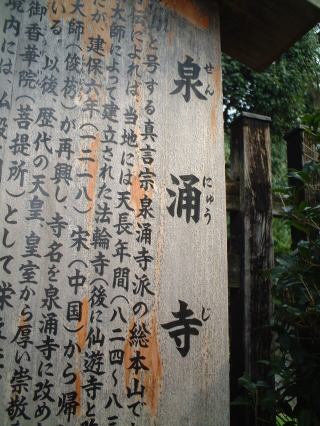 泉涌寺
せんにゅうじ
と号する真言宗泉涌寺派の総本山で
伝によれば、当地には天長年間（八二四～八三
大師によって建立された法輪寺（後に仙遊寺と
が、建保六年（一二一八）宋（中国）から帰
大師（俊芿）が再興し、寺名を泉涌寺に改め
いる。以後、歴代の天皇、皇室から厚い崇敬
御香華院（菩提所）として栄
境内には仏殿